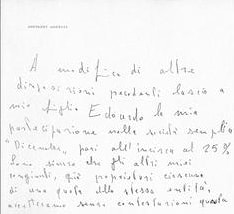 A modifica di altre
disposizioni precedenti lascio a
mio figlio Edoardo la mia
partecipazione nella società semplice
"Dicembre", pari all'incirca al 25%
Sono sicuro che gli altri miei
congiunti, già proprietari ciascuno
di una quota della stessa entità,
accetteranno senza contestazioni questa